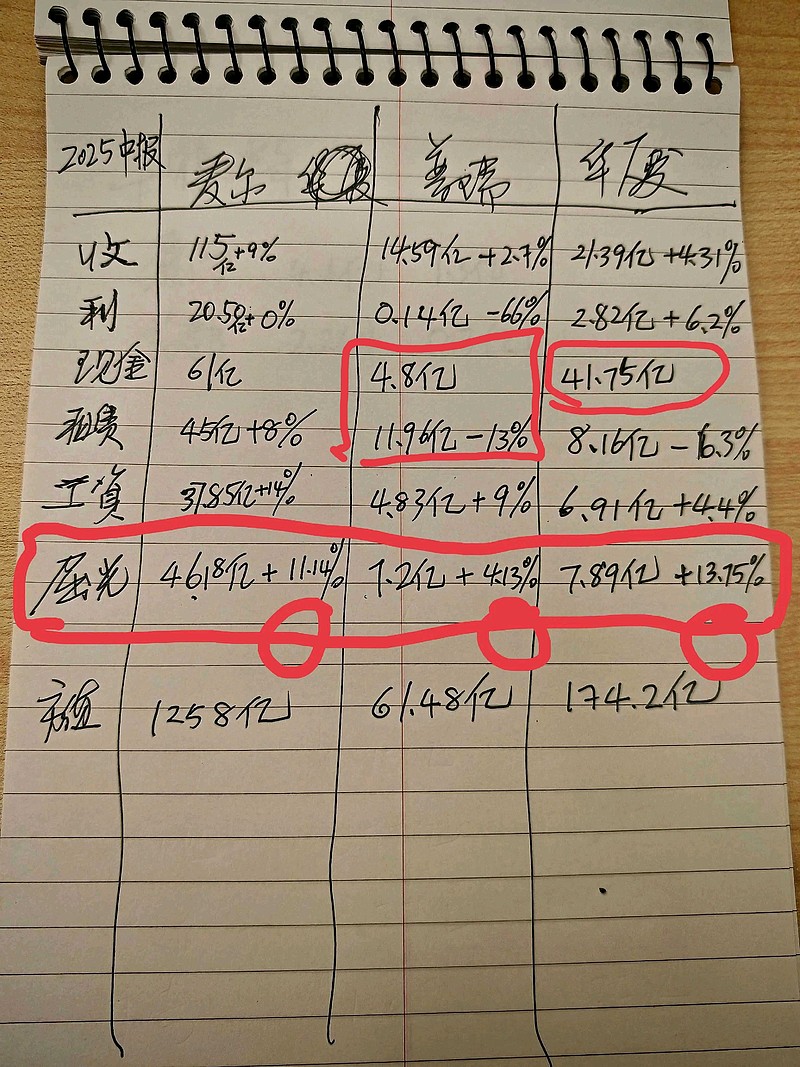 2025中报 麦尔 普瑞 华厦
收 115亿+9% 14.59亿+2.7% 21.39亿+4.31%
利 20.50亿+0% 0.14亿-66% 2.82亿+6.2%
现金 61亿 4.8亿 41.75亿
租赁 45亿+8% 11.96亿-13% 8.16亿-6.3%
工资 37.85亿+14% 4.83亿+9% 6.91亿+4.4%
屈光 46.18亿+11.14% 7.2亿+4.13% 7.89亿+13.75%
市值 1258亿 61.48亿 174.2亿